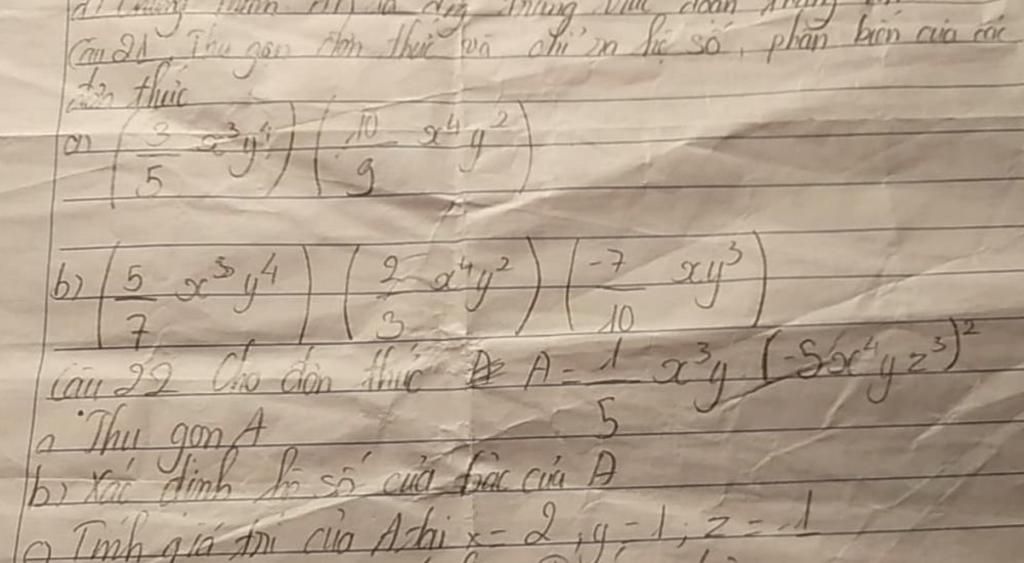 Câu 21 Thu gọn đơn thức và chỉ ra hệ số, phần biến của các
đơn thức
a) (3/5 x³y⁴) (10/9 x⁴y²)
b) (5/7 x³y⁴) (2/3 x⁴y²) (-7/10 xy³)
Câu 22 Cho đơn thức A = 1/5 x³y (-5x⁴yz³)²
a Thu gọn A
b) Xác định hệ số của bậc của A
c) Tính giá trị của A khi x = 2, y = 1; z = -1